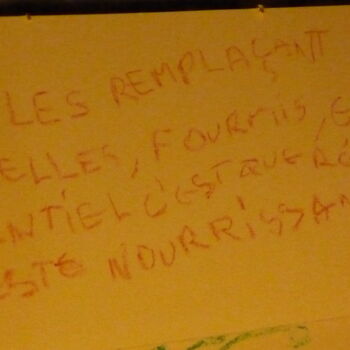 LES REMPLAÇANT
ELLES, FOURMIS, E
NTIEL C'EST QUE
ESTE NOURRISSAN